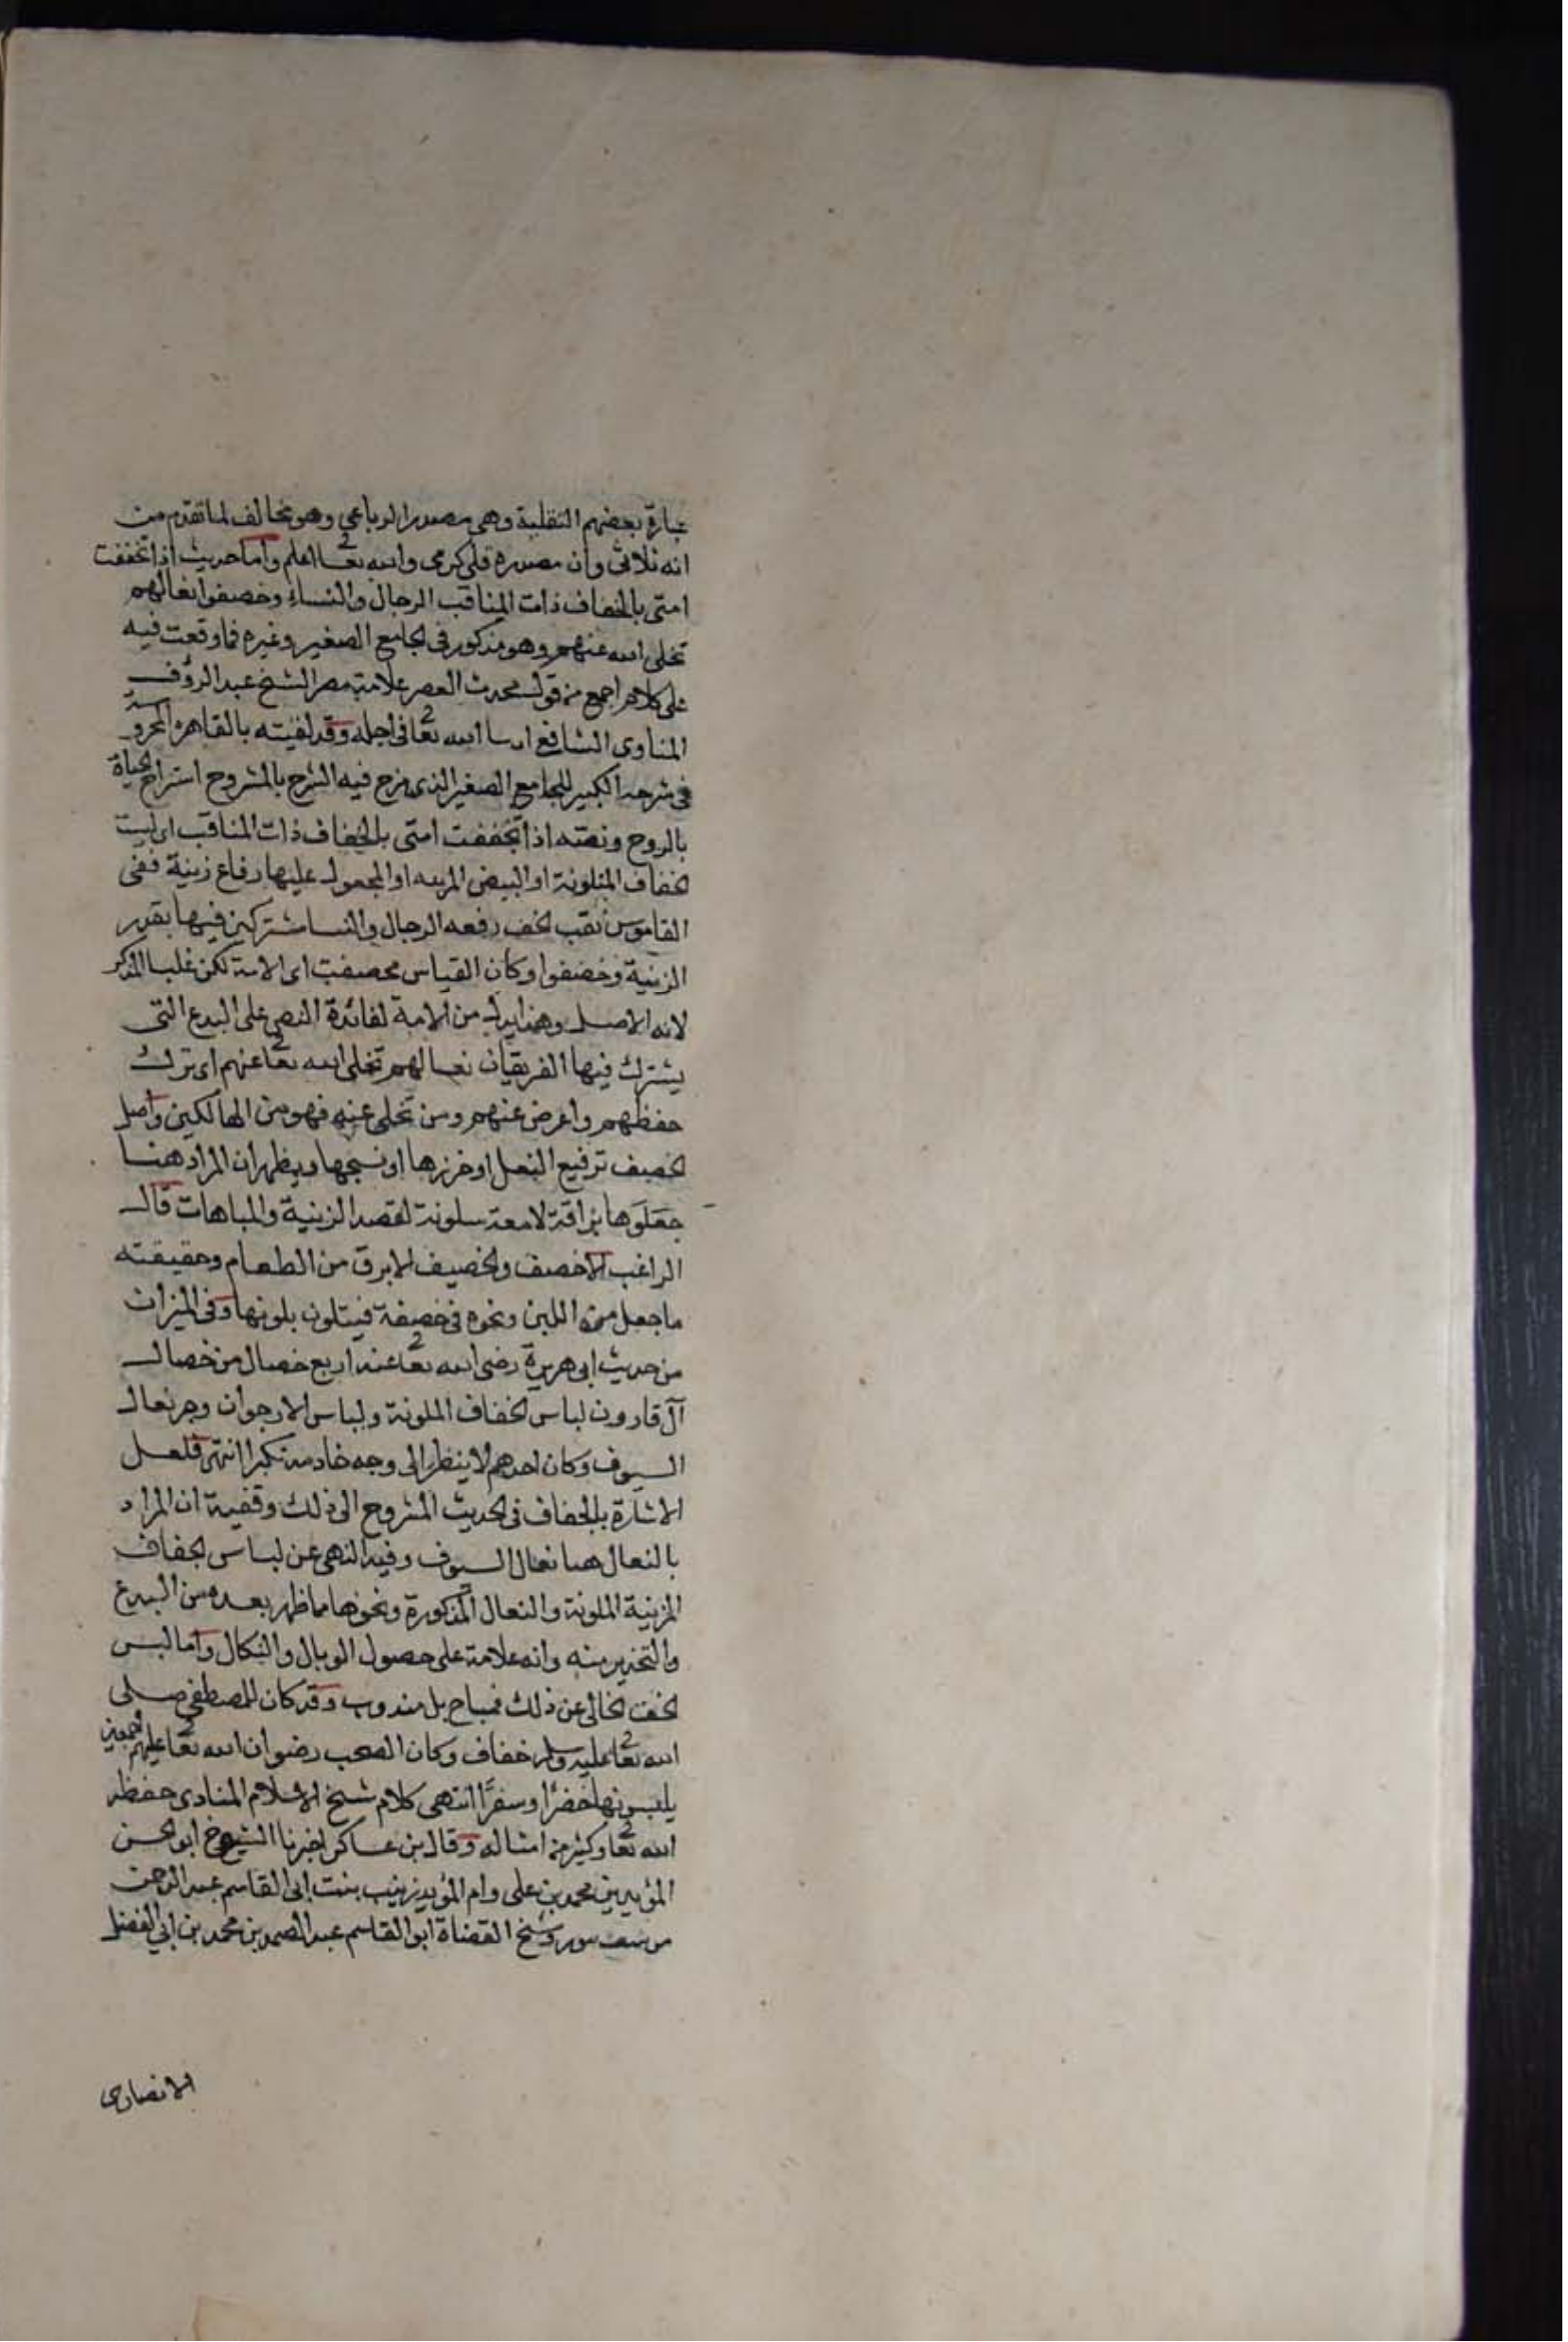 عبارة بعضهم التقلية وهي مصدر الرباعي وهو مخالف لما تقدم من
انه ثلاثي وان مصدره قلى كرمى والله تعا اعلم واما حديث اذا تخففت
امتي بالخفاف ذات المناقب الرجال والنساء وخصفوا نعالهم
تخلى الله عنهم وهو مذكور في الجامع الصغير وغيره فما وقعت فيه
على كلام اجمع من قول محدث العصر علامة مصر الشيخ عبد الرؤف
المناوي الشافع انسا الله تعا في اجله وقد لقيته بالقاهرة المحروسة
في شرحه الكبير للجامع الصغير الذي مزج فيه الشرح بالمشروح امتزاج الحياة
بالروح ونصه اذا تخففت امتي بالخفاف ذات المناقب اي لبست
الخفاف المتلونة او البيض المزينه او المجعول عليها رقاع زينة ففي
القاموس نقب الخف رقعه الرجال والنسا مشتركين فيها بقدر
الزينة وخصفوا وكان القياس خصفت اي الامة لكن غلب المذكر
لانه الاصل وهذا بدل من الامة لفائدة النص على البدع التي
يشترك فيها الفريقان نعالهم تخلى الله تعا عنهم اي ترك
حفظهم واعرض عنهم ومن تخلى عنه فهو من الهالكين واصل
الخصف ترقيع النعل او خرزها او نسجها ويظهر ان المراد هنا
جعلوها براقة لامعة ملونة لقصد الزينة والمباهات قال
الراغب الاخصف والخصيف الابرق من الطعام وحقيقته
ما جعل من اللبن ونحوه في خصفة فيتلون بلونها وفي الميزان
من حديث ابي هريرة رضى الله تعا عنه اربع خصال من خصال
آل قارون لباس الخفاف الملونة ولباس الارجوان وجر نعال
السيوف وكان احدهم لا ينظر الى وجه خادمه تكبرا انتهى فلعل
الاشارة بالخفاف في الحديث المشروح الى ذلك وقضية ان المراد
بالنعال هنا نعال السيوف وفيه النهي عن لباس الخفاف
المزينة الملونة والنعال المذكورة ونحوها مما ظهر بعده من البدع
والتحذير منه وانه علامة على حصول الوبال والنكال واما لبس
الخف الخالى عن ذلك فمباح بل مندوب وقد كان للمصطفى صلى
الله تعا عليه وسلم خفاف وكان الصحب رضوان الله تعا عليهم اجمعين
يلبسونها حضرًا وسفرًا انتهى كلام شيخ الاسلام المناوى حفظه
الله تعا وكثر من امثاله وقال بن عساكر اخبرنا الشيوخ ابو الحسن
المؤيد بن محمد بن على وام المؤيد زينب بنت ابي القاسم عبد الرحمن
وشيخ القضاة ابو القاسم عبد الصمد بن محمد بن ابي الفضل
الانصاري